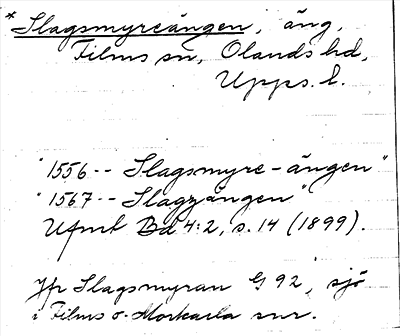 *Slagsmyreängen, äng,
Films sn, Olands hd,
Upps. l.
"1556 -- Slagsmyre-ängen"
"1567 -- Slagzängen"
Ufmt Bd 4:2, s. 14 (1899).
Jfr Slagsmyran G 92, sjö
i Films o. Morkarla snr.